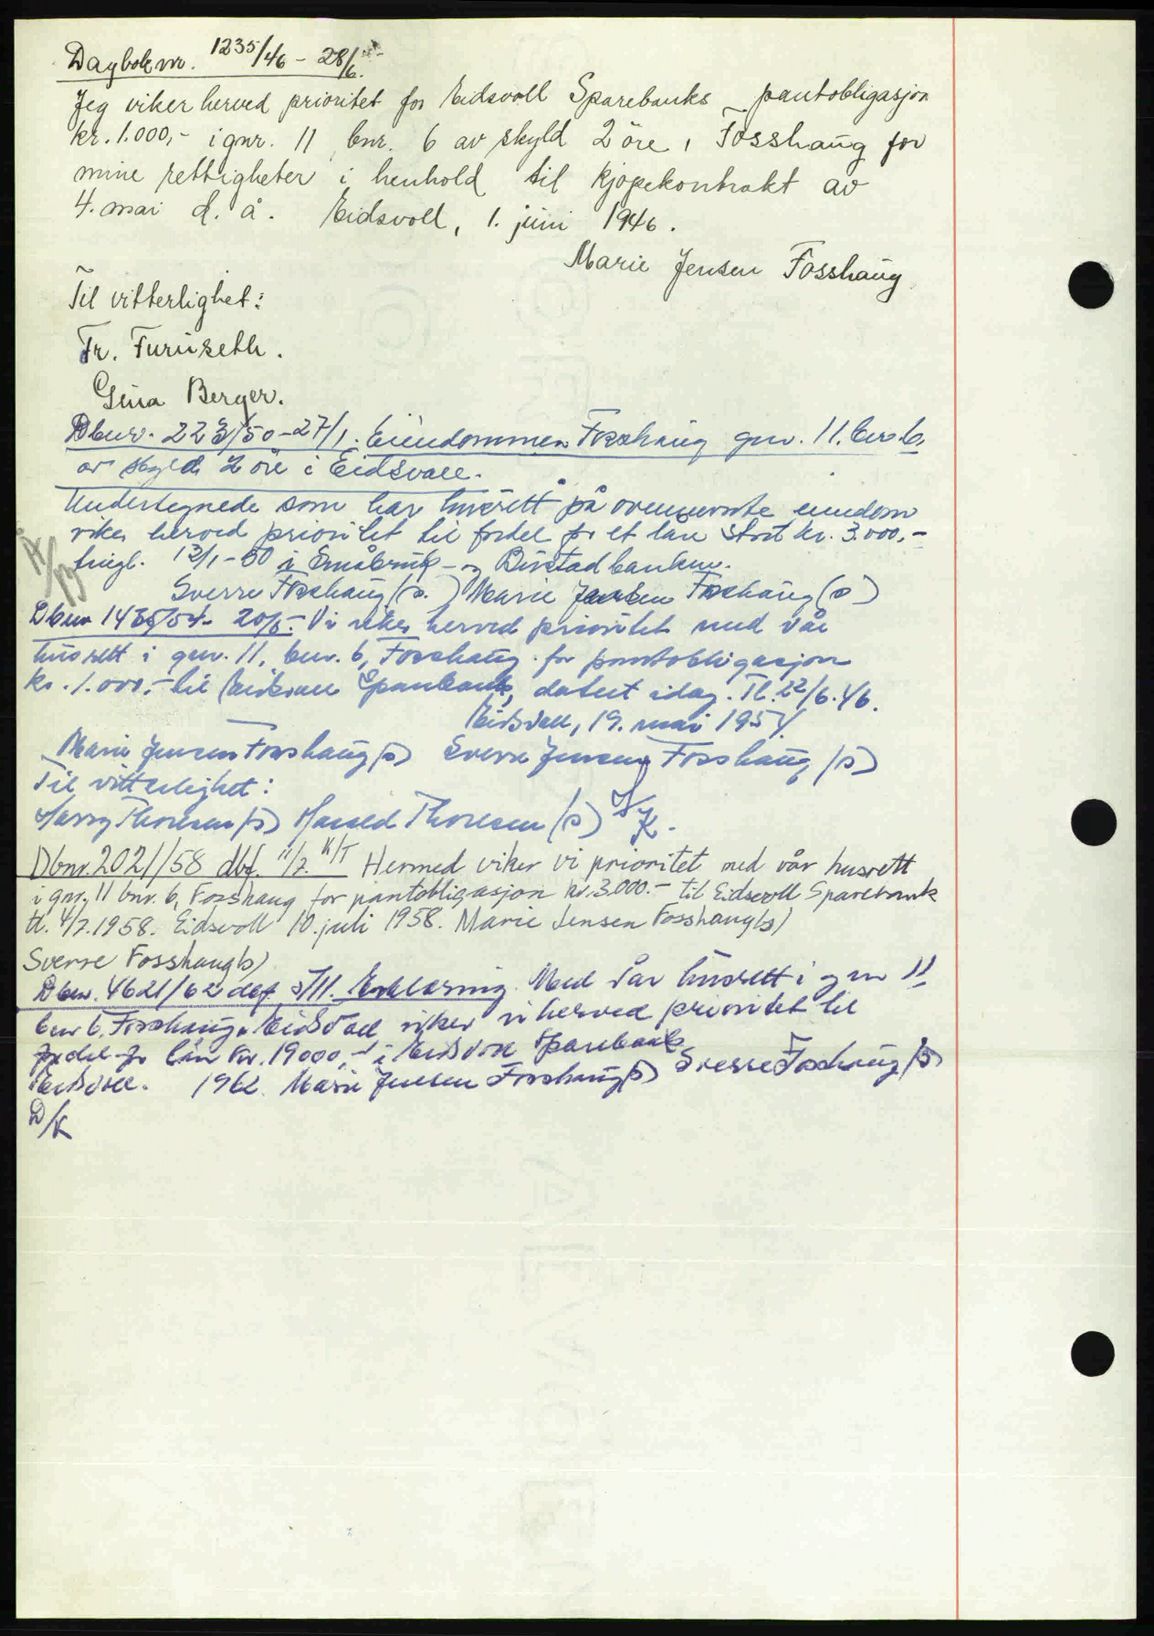 Dagboknr. 1235/46 - 28/6.
Jeg viker herved prioritet for Eidsvoll Sparebanks pantobligasjon
kr. 1.000,- i gnr. 11 bnr. 6 av skyld 2 öre, Fosshaug for
mine rettigheter i henhold til kjøpekontrakt av
4. mai d. å. Eidsvoll, 1. juni 1946.
Marie Jensen Fosshaug
Til vitterlighet:
Fr. Furuseth.
Gina Berger.
Dbnr. 223/50 - 27/1. Eiendommen Fosshaug gnr. 11. bnr 6.
av skyld 2 öre i Eidsvoll.
Undertegnede som har husrett på ovennevnte eiendom
viker herved prioritet til fordel for et lån stort kr. 3.000,-
tingl. 12/1-50 i Småbruk- og Bustadbanken.
Sverre Fosshaug (s.) Marie Jensen Fosshaug (s)
Dbnr 1435/54 - 20/5. Vi viker herved prioritet med vår
husrett i gnr. 11, bnr. 6, Fosshaug for pantobligasjon
kr. 1.000,- til Eidsvoll Sparebank, datert idag. Tl. 22/6.46.
Eidsvoll, 19. mai 1954.
Marie Jensen Fosshaug (s) Sverre Jensen Fosshaug (s)
Til vitterlighet:
Harry Thoresen (s) Harald Thoresen (s)
Dbnr. 2021/58 dbf. 11/7. K/T Hermed viker vi prioritet med vår husrett
i gnr. 11 bnr. 6, Fosshaug for pantobligasjon kr. 3.000.- til Eidsvoll Sparebank
tl. 4/7.1958. Eidsvoll 10. juli 1958. Marie Jensen Fosshaug (s)
Sverre Fosshaug (s)
Dbnr. 4621/62 dbf. 5/11. Erklæring. Med vår husrett i gnr 11
bnr 6, Fosshaug, Eidsvoll viker vi herved prioritet til
fordel for lån kr. 19000,- i Eidsvoll Sparebank
Eidsvoll. 1962. Marie Jensen Fosshaug (s) Sverre Fosshaug (s)
D/K